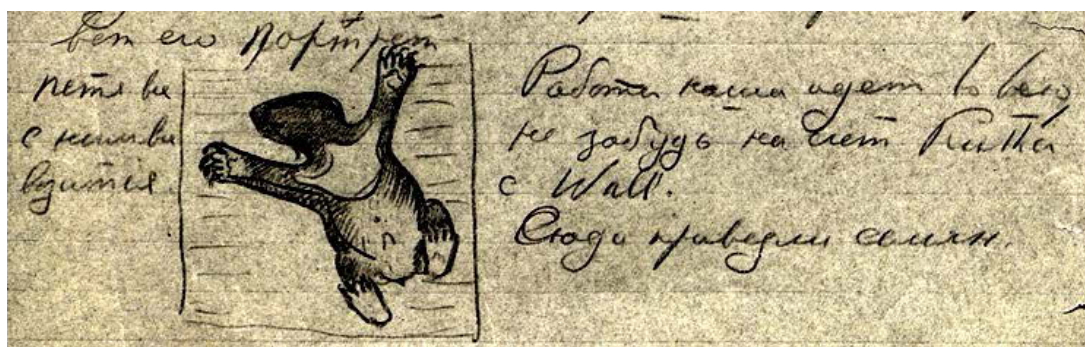 вот его портрет
Петя ве
с ними ве
возится.
Работа наша идет во всю,
не забудь на счет
с Wall.
Сюда привезли семян.